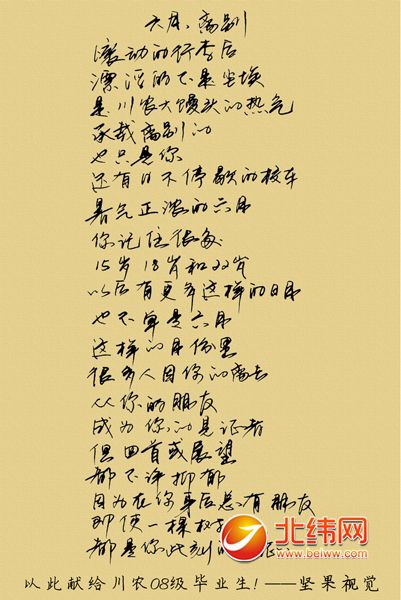 六月，离别
滚动的行李后
漂浮的不是尘埃
是川农大馒头的热气
承载离别的
也只是你
还有日不停歇的校车
暑气正浓的六月
你记住很多
15岁 18岁和22岁
以后有更多这样的日月
也不单是六月
这样的月份里
很多人因你的离去
从你的朋友
成为你的见证者
但回首或展望
都不许抑郁
因为在你身后总有朋友
即使一棵
都是你此刻的
北纬网
www.beiww.com
以此献给川农08级毕业生！——坚果视觉